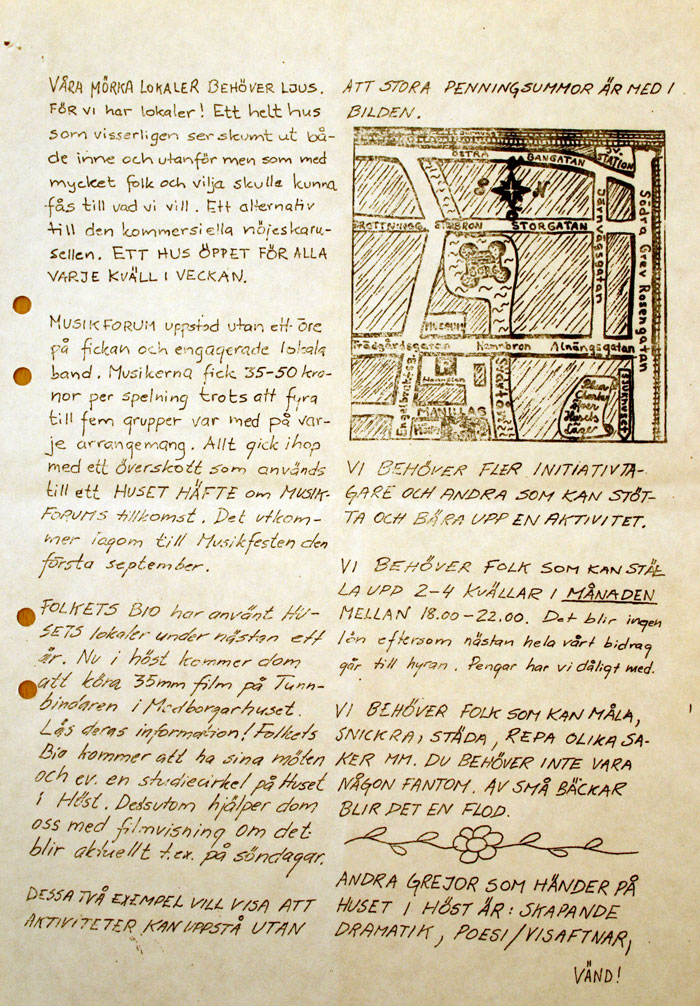 VÅRA MÖRKA LOKALER BEHÖVER LJUS.
FÖR VI har lokaler! Ett helt hus
som visserligen ser skumt ut bå-
de inne och utanför men som med
mycket folk och vilja skulle kunna
fås till vad vi vill. Ett alternativ
till den kommersiella nöjeskaru-
sellen. ETT HUS ÖPPET FÖR ALLA
VARJE KVÄLL I VECKAN.
MUSIKFORUM uppstod utan ett öre
på fickan och engagerade lokala
band. Musikerna fick 35-50 kro-
nor per spelning trots att fyra
till fem grupper var med på var-
je arrangemang. Allt gick ihop
med ett överskott som används
till ett HUSET HÄFTE om MUSIK-
FORUMS tillkomst. Det utkom-
mer lagom till Musikfesten den
första september.
FOLKETS BIO har använt HU-
SETS lokaler under nästan ett
år. Nu i höst kommer dom
att köra 35mm film på Tunn-
bindaren i Medborgarhuset.
Läs deras information! Folkets
Bio kommer att ha sina möten
och ev. en studiecirkel på Huset
i Höst. Dessutom hjälper dom
oss med filmvisning om det
blir aktuellt t.ex. på söndagar.
DESSA TVÅ EXEMPEL VILL VISA ATT
AKTIVITETER KAN UPPSTÅ UTAN
ATT STORA PENNINGSUMMOR ÄR MED I
BILDEN.
ÖSTRA GÅNGATAN
J.V. STATION
S N
STORGATAN
Järnvägsgatan
Södra Grev Rosengatan
MUSEUM
Trädgårdsgatan Hamnbron Alnängsgatan
Engelbrekts B.
P
MANILLAS
SVARTÅN
SJUKHUSET
VI BEHÖVER FLER INITIATIVTA-
GARE OCH ANDRA SOM KAN STÖT-
TA OCH BÄRA UPP EN AKTIVITET.
VI BEHÖVER FOLK SOM KAN STÄL
LA UPP 2-4 KVÄLLAR I MÅNADEN
MELLAN 18.00-22.00. Det blir ingen
lön eftersom nästan hela vårt bidrag
går till hyran. Pengar har vi dåligt med.
VI BEHÖVER FOLK SOM KAN MÅLA,
SNICKRA, STÄDA, REPA OLIKA SA-
KER MM. DU BEHÖVER INTE VARA
NÅGON FANTOM. AV SMÅ BÄCKAR
BLIR DET EN FLOD.
ANDRA GREJOR SOM HÄNDER PÅ
HUSET I HÖST ÄR: SKAPANDE
DRAMATIK, POESI/VISAFTNAR,
VÄND!